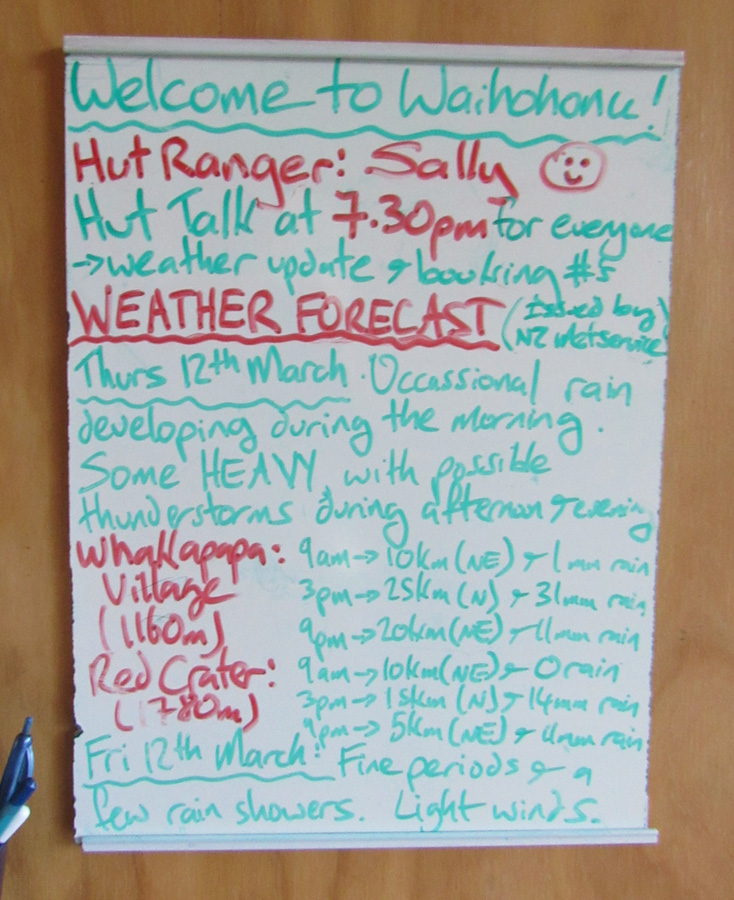 Welcome to Waihohonu!
Hut Ranger: Sally
Hut Talk at 7.30pm for everyone
→ weather update & booking #s
WEATHER FORECAST (Issued by NZ Metservice)
Thurs 12th March. Occassional rain
developing during the morning.
Some HEAVY with possible
thunderstorms during afternoon & evening
Whakapapa: 9am → 10km (NE) & 1mm rain
Village 3pm → 25km (N) & 31mm rain
(1160m) 9pm → 20km (NE) & 11mm rain
Red Crater: 9am → 10km (NE) & 0 rain
(1780m) 3pm → 15km (N) & 14mm rain
9pm → 5km (NE) & 4mm rain
Fri 12th March: Fine periods & a
few rain showers. Light winds.